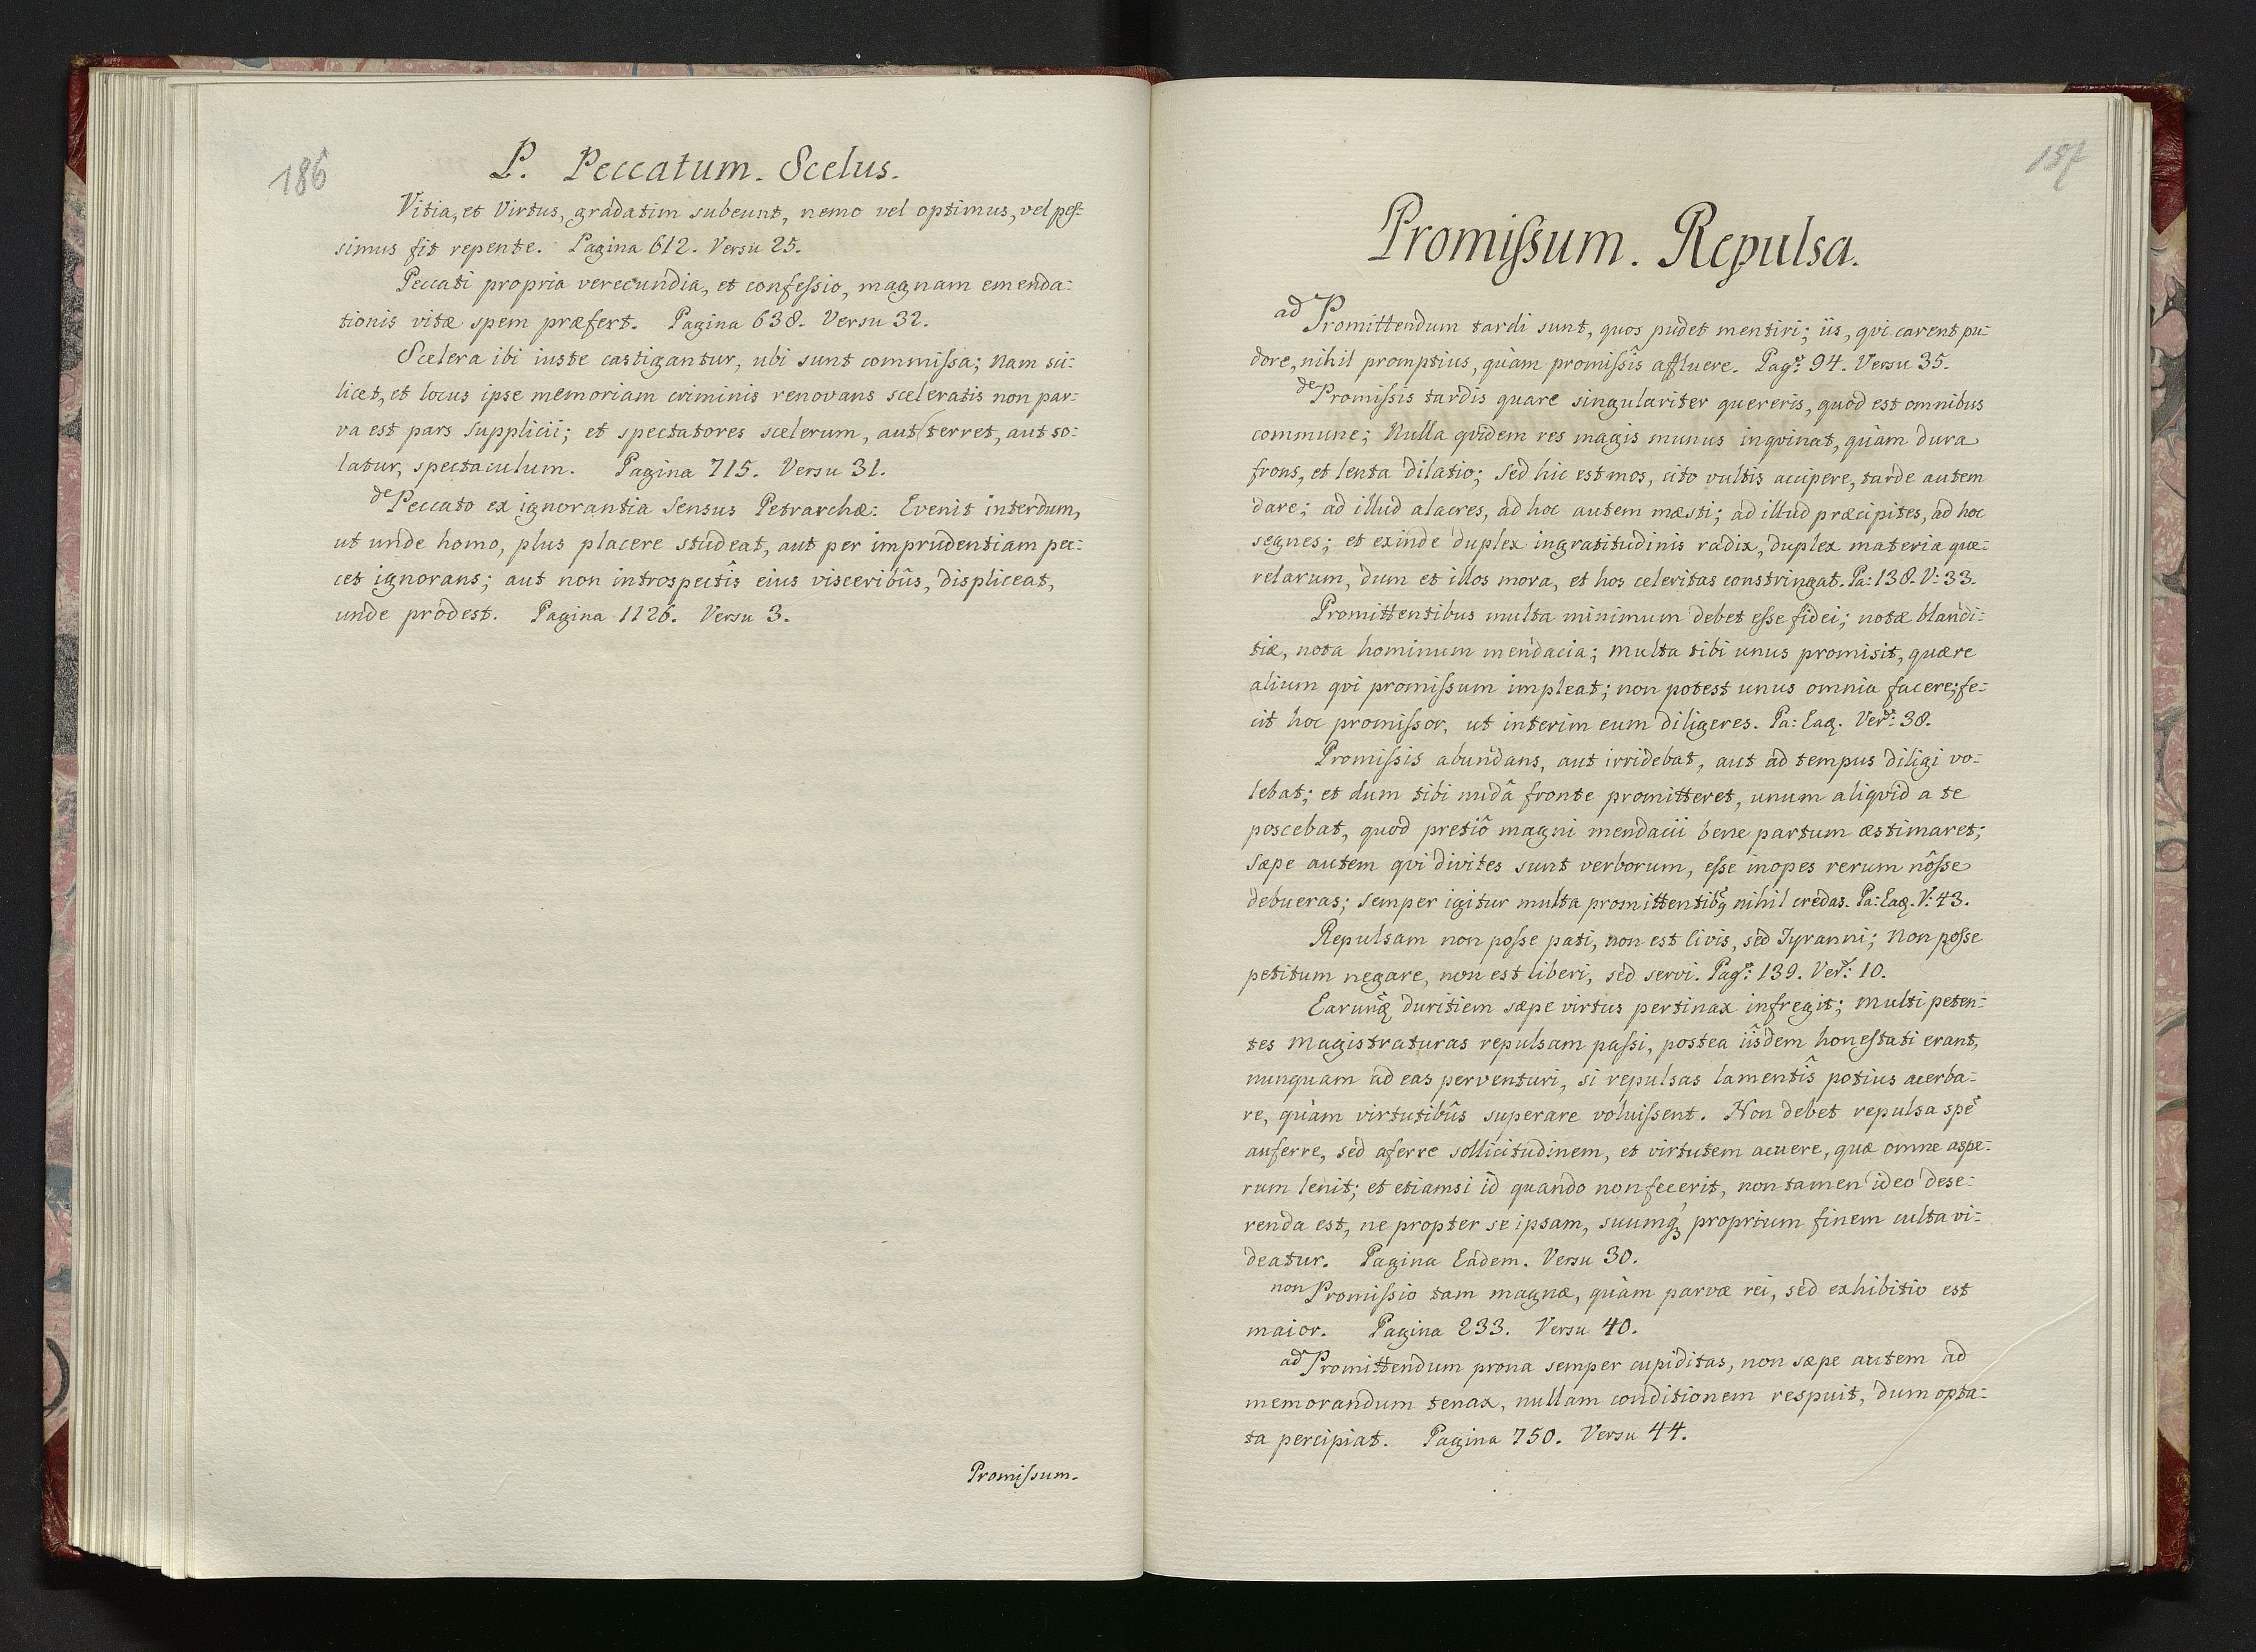 186
P. Peccatum. Scelus.
Vitia, et Virtus, gradatim subeunt, nemo vel optimus, vel pes-
simus fit repente. Pagina 612. Versu 25.
Peccati propria verecundia, et confeſsio, magnam emenda-
tionis vitæ spem præfert. Pagina 638. Versu 32.
Scelera ibi iuste castigantur, ubi sunt commiſsa; Nam sci-
licet, et locus ipse memoriam criminis renovans sceleratis non par-
va est pars supplicii; et spectatores scelerum, aut terret, aut so-
latur, spectaculum. Pagina 715. Versu 31.
de Peccato ex ignorantia Sensus Petrarchæ: Evenit interdum,
ut unde homo, plus placere studeat, aut per imprudentiam pec-
cet ignorans; aut non introspectîs eius visceribûs, displiceat,
unde prodest. Pagina 1126. Versu 3.
Promiſsum.
187
Promiſsum. Repulsa.
ad Promittendum tardi sunt, quos pudet mentiri; iis, qvi carent pu-
dore, nihil promptius, quàm promiſsîs affluere. Pagª: 94. Versu 35.
de Promiſsis tardis quare singulariter quereris, quod est omnibus
commune; Nulla qvidem res magis munus inqvinat, quàm dura
frons, et lenta dilatio; Sed hic est mos, cito vultis accipere, tarde autem
dare; ad illud alacres, ad hoc autem mæsti; ad illud præcipites, ad hoc
segnes; et exinde duplex ingratitudinis radix, duplex materia quæ-
relarum, dum et illos mora, et hos celeritas constringat. Pa: 138. V: 33.
Promittentibus multa minimum debet eſse fidei; notæ blandi-
tiæ, nota hominum mendacia; multa tibi unus promisit, quære
alium qvi promiſsum impleat; non potest unus omnia facere; fe-
cit hoc promiſsor, ut interim eum diligeres. Pa: Eaq. Verˢ: 38.
Promiſsis abundans, aut irridebat, aut ad tempus diligi vo-
lebat; et dum tibi nudâ fronte promitteret, unum aliqvid a te
poscebat, quod pretiô magni mendacii bene partum æstimaret;
sæpe autem qvi divites sunt verborum, eſse inopes rerum nôſse
debueras; semper igitur multa promittentibꝫ nihil credas. Pa: Eaq. V: 43.
Repulsam non poſse pati, non est Civis, sed Tyranni; Non poſse
petitum negare, non est liberi, sed servi. Pagª: 139. Verˢ: 10.
Earumq duritiem sæpe virtus pertinax infregit; multi peten-
tes Magistraturas repulsam paſsi, postea iîsdem honestati erant,
nunquam ad eas perventuri, si repulsas lamentîs potius acerba-
re, quàm virtutibûs superare voluiſsent. Non debet repulsa spē
auferre, sed aferre sollicitudinem, et virtutem acuere, quæ omne aspe-
rum lenit; et etiamsi id quando non fecerit, non tamen ideo dese-
renda est, ne propter se ipsam, suumqꝫ proprium finem culta vi-
deatur. Pagina Eadem. Versu 30.
non Promiſsio tam magnæ, quàm parvæ rei, sed exhibitio est
maior. Pagina 233. Versu 40.
ad Promittendum prona semper cupiditas, non sæpe autem ad
memorandum tenax, nullam conditionem respuit, dum opta-
ta percipiat. Pagina 750. Versu 44.